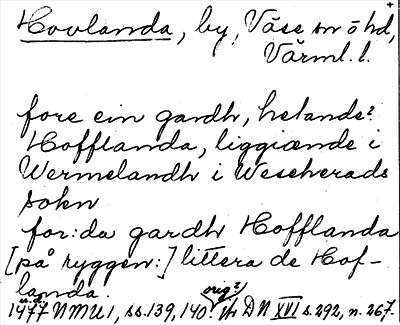 Hovlanda, by, Väse sn ö hd,
Värml. l.
fore ein gardh, hetande?
Hofflanda, liggiænde i
Wermelandh i Wescherads
sokn
for:da gardh Hofflanda
[på ryggen:] littera de Hof-
landa.
orig?
1477 NMU 1, ss. 139, 140. DN XVI s. 292, n. 267.